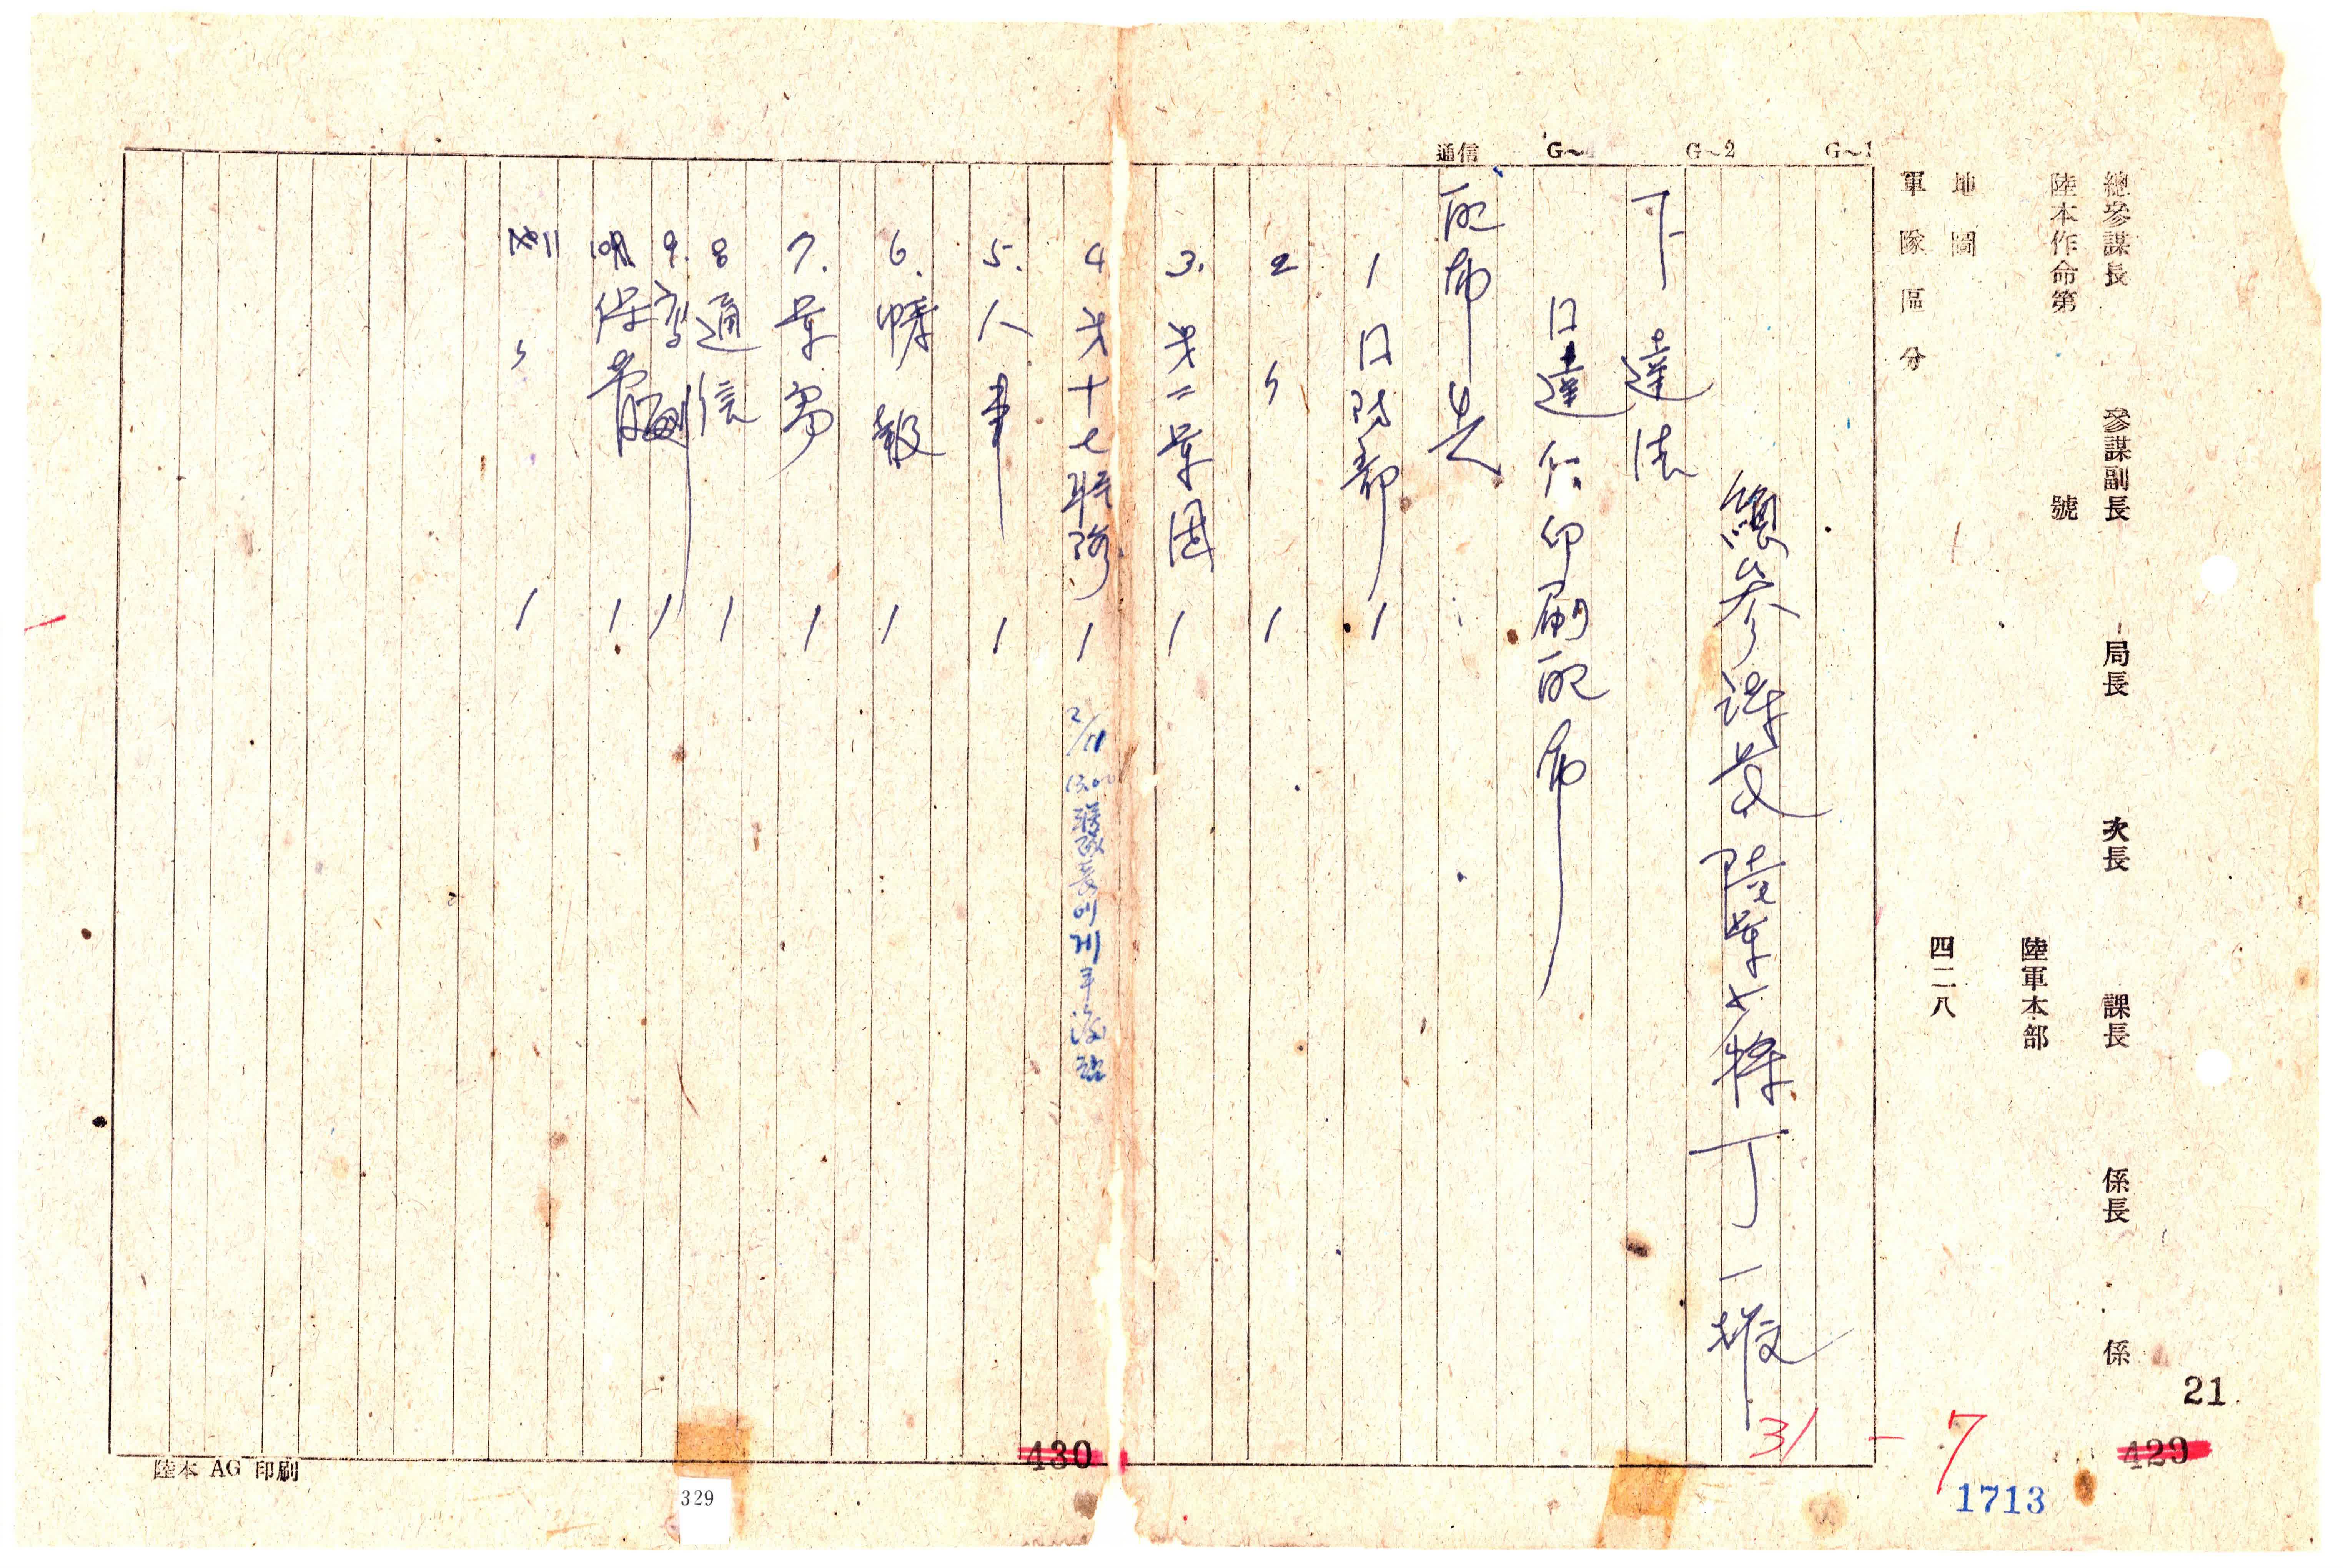 總參謀長 參謀副長 局長 次長 課長 係長 係
陸本作命第 號
陸軍本部
地圖
四二八
軍隊區分
G~1
G~2
G~
通信
總參謀長 陸軍少將 丁一權
下達法
口達 印刷配布
配布先
1 口 部 1
2 〃 1
3. 第二軍團 1
4 第十七聯隊 1 2/11 13.00 聯隊長에게 手渡
5. 人事 1
6. 情報 1
7. 軍 1
8 通信 1
9. 副 1
10 保管 1
11 〃 1
陸本 AG 印刷
430
329
31 - 7
21
429
1713